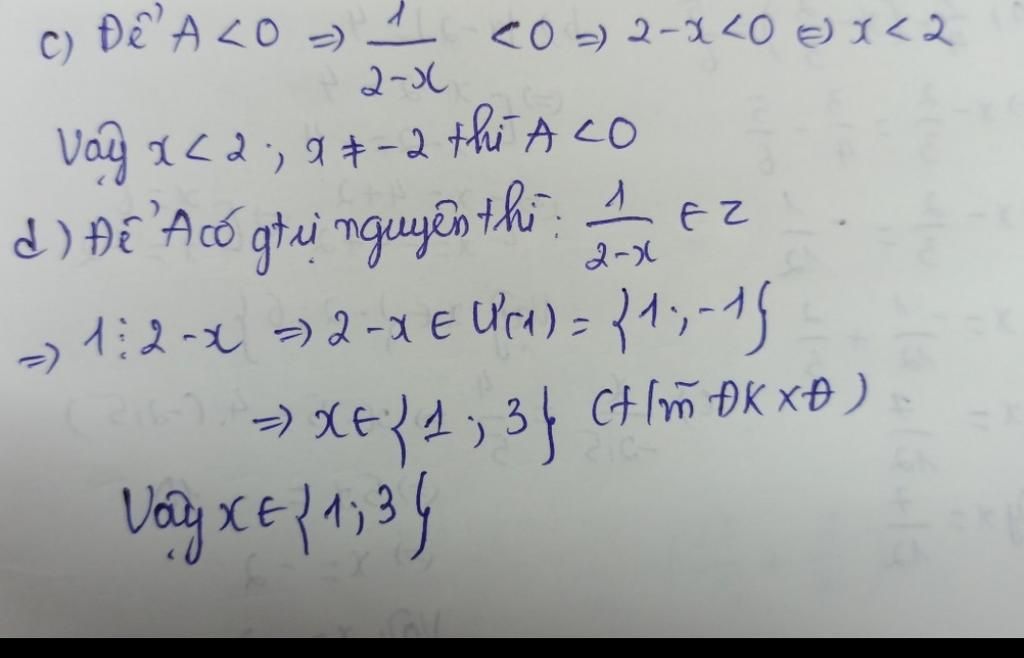 c) Để A < 0 => 1/(2-x) < 0 => 2-x < 0 <=> x < 2
Vậy x < 2; x ≠ -2 thì A < 0
d) Để A có gtrị nguyên thì: 1/(2-x) ∈ Z
=> 1 ⋮ 2-x => 2-x ∈ Ư(1) = {1; -1}
=> x ∈ {1; 3} (t/m ĐKXĐ)
Vậy x ∈ {1; 3}